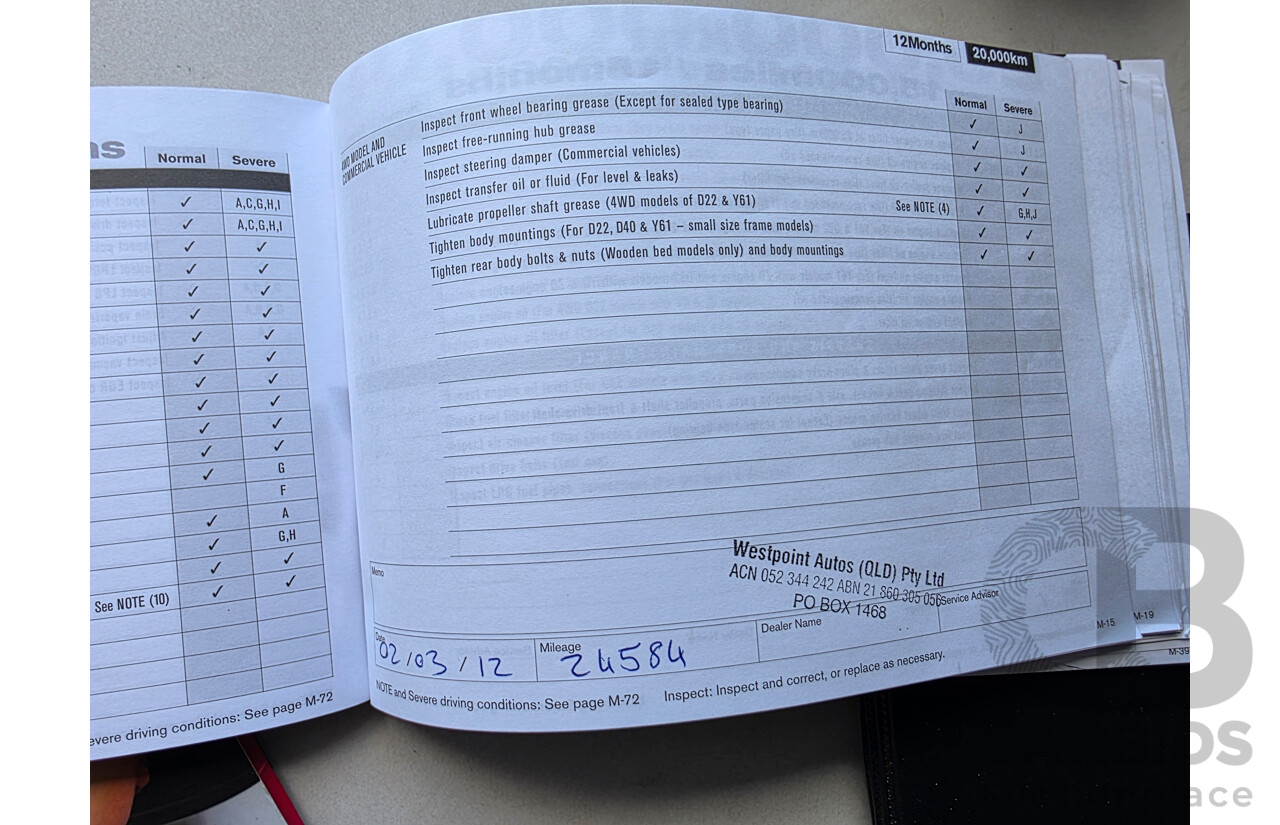 ns
Normal Severe
✓ A,C,G,H,I
✓ A,C,G,H,I
✓ ✓
✓ ✓
✓ ✓
✓ ✓
✓ ✓
✓ ✓
✓ ✓
✓ ✓
✓ ✓
✓ ✓
✓ G
F
✓ A
✓ G,H
✓ ✓
See NOTE (10) ✓ ✓
evere driving conditions: See page M-72
12Months 20,000km
Normal Severe
COMMERCIAL VEHICLE
Inspect front wheel bearing grease (Except for sealed type bearing) ✓ J
Inspect free-running hub grease ✓ J
Inspect steering damper (Commercial vehicles) ✓ ✓
Inspect transfer oil or fluid (For level & leaks) ✓ ✓
Lubricate propeller shaft grease (4WD models of D22 & Y61) See NOTE (4) ✓ G,H,J
Tighten body mountings (For D22, D40 & Y61 – small size frame models) ✓ ✓
Tighten rear body bolts & nuts (Wooden bed models only) and body mountings ✓ ✓
Memo
Westpoint Autos (QLD) Pty Ltd
ACN 052 344 242 ABN 21 860 305 056
PO BOX 1468
Date
02/03/12
Mileage
24584
Dealer Name
Service Advisor
NOTE and Severe driving conditions: See page M-72 Inspect: Inspect and correct, or replace as necessary.
M-15
M-19
M-39